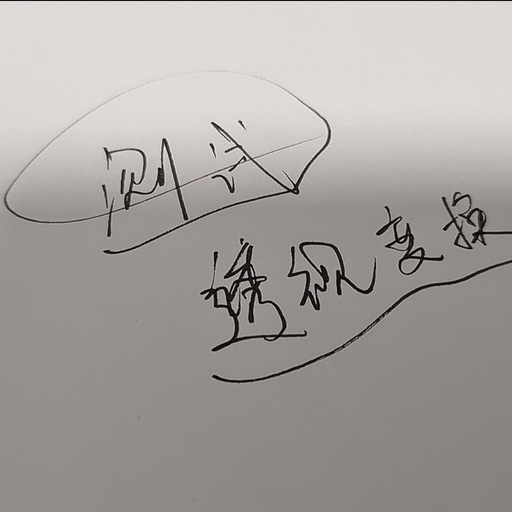 测试
透视变换